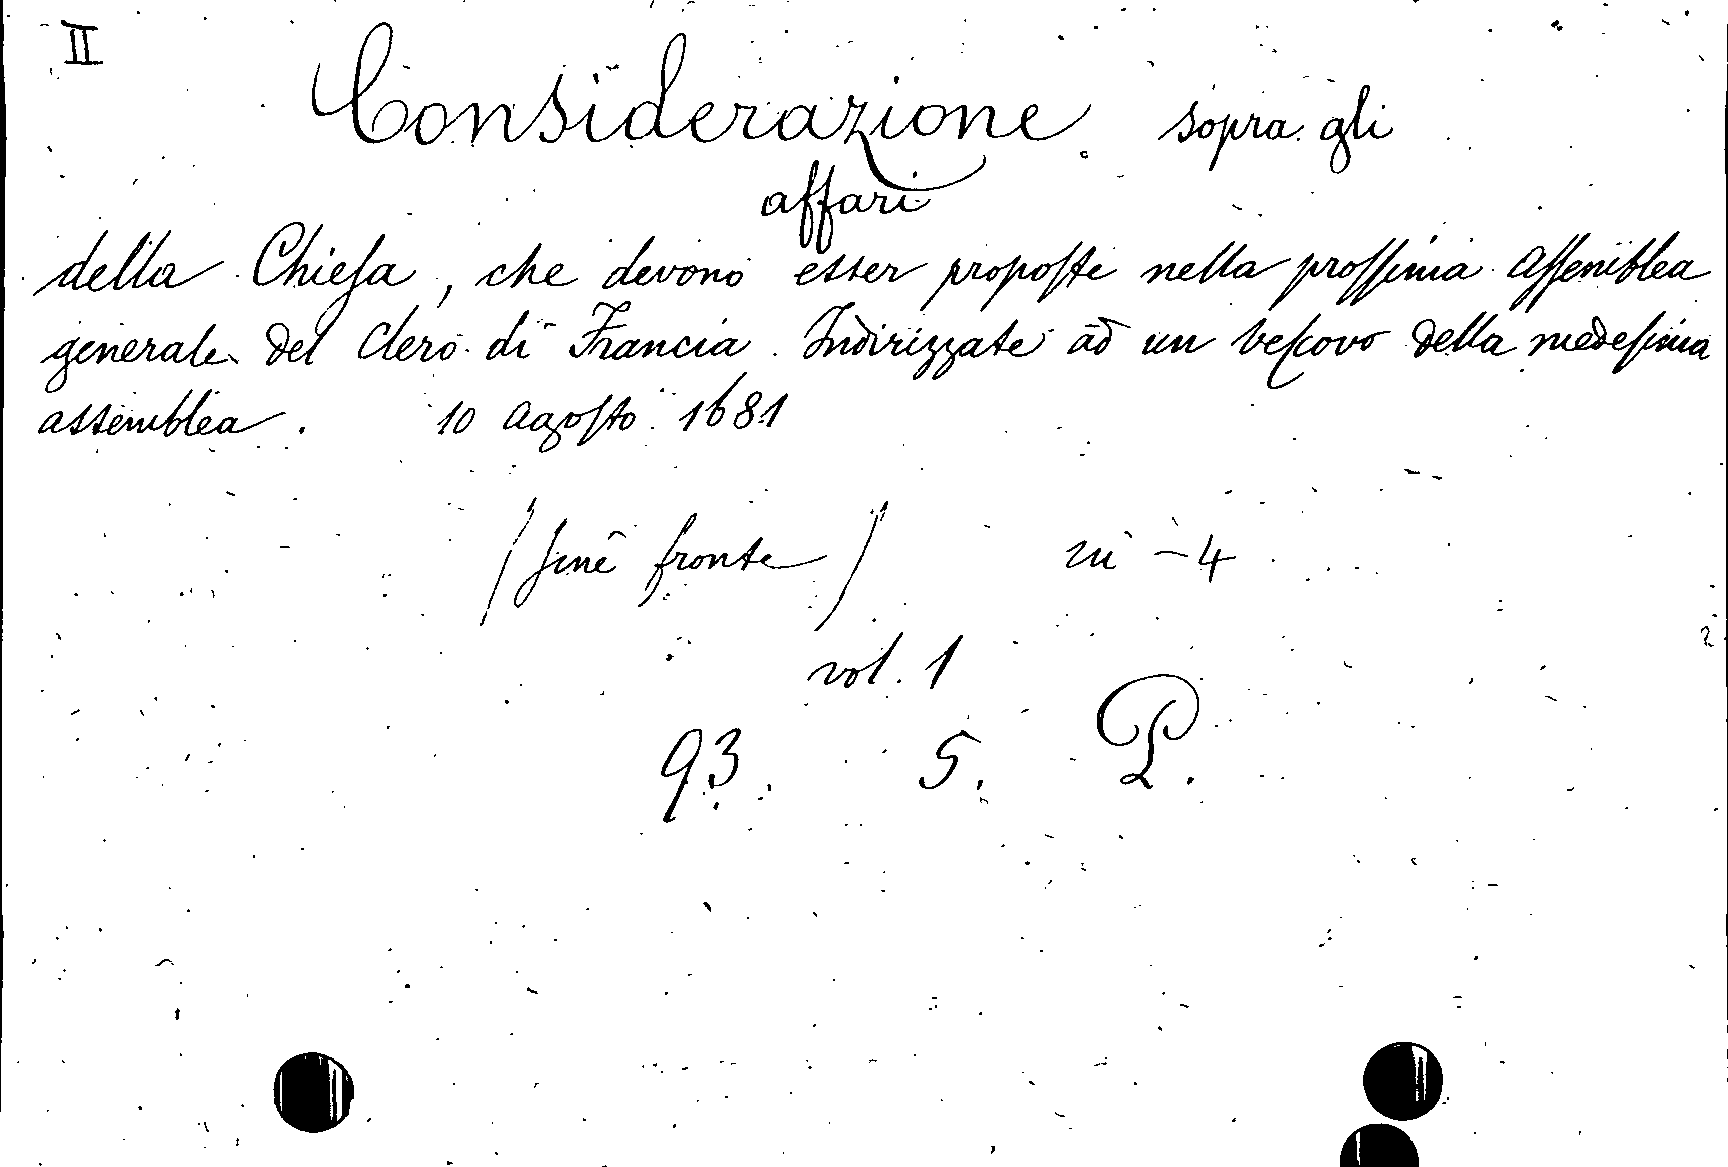 II
Considerazione sopra gli
affari
della Chieſa, che devono esser propoſte nella proſſima aſſemblea
generale del Clero di Francia. Indirizzate ad un veſcovo della medeſima
assemblea. 10 agoſto 1681
(ſine fronte) in-4
vol. 1
93. 5. P.